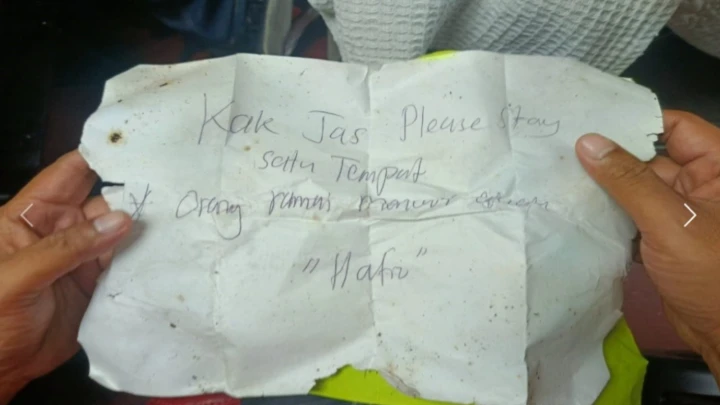 Kak Jas Please Stay
satu Tempat
* Orang ramai
"Hafiz"